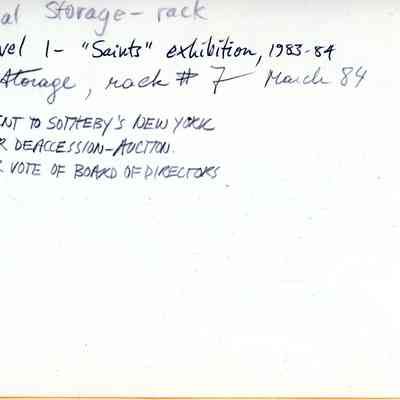 al Storage - rack
vel 1 - "Saints" exhibition, 1983-84
Storage, rack # 7 March 84
NT TO SOTHEBY'S NEW YORK
R DEACCESSION-AUCTION.
R VOTE OF BOARD OF DIRECTORS